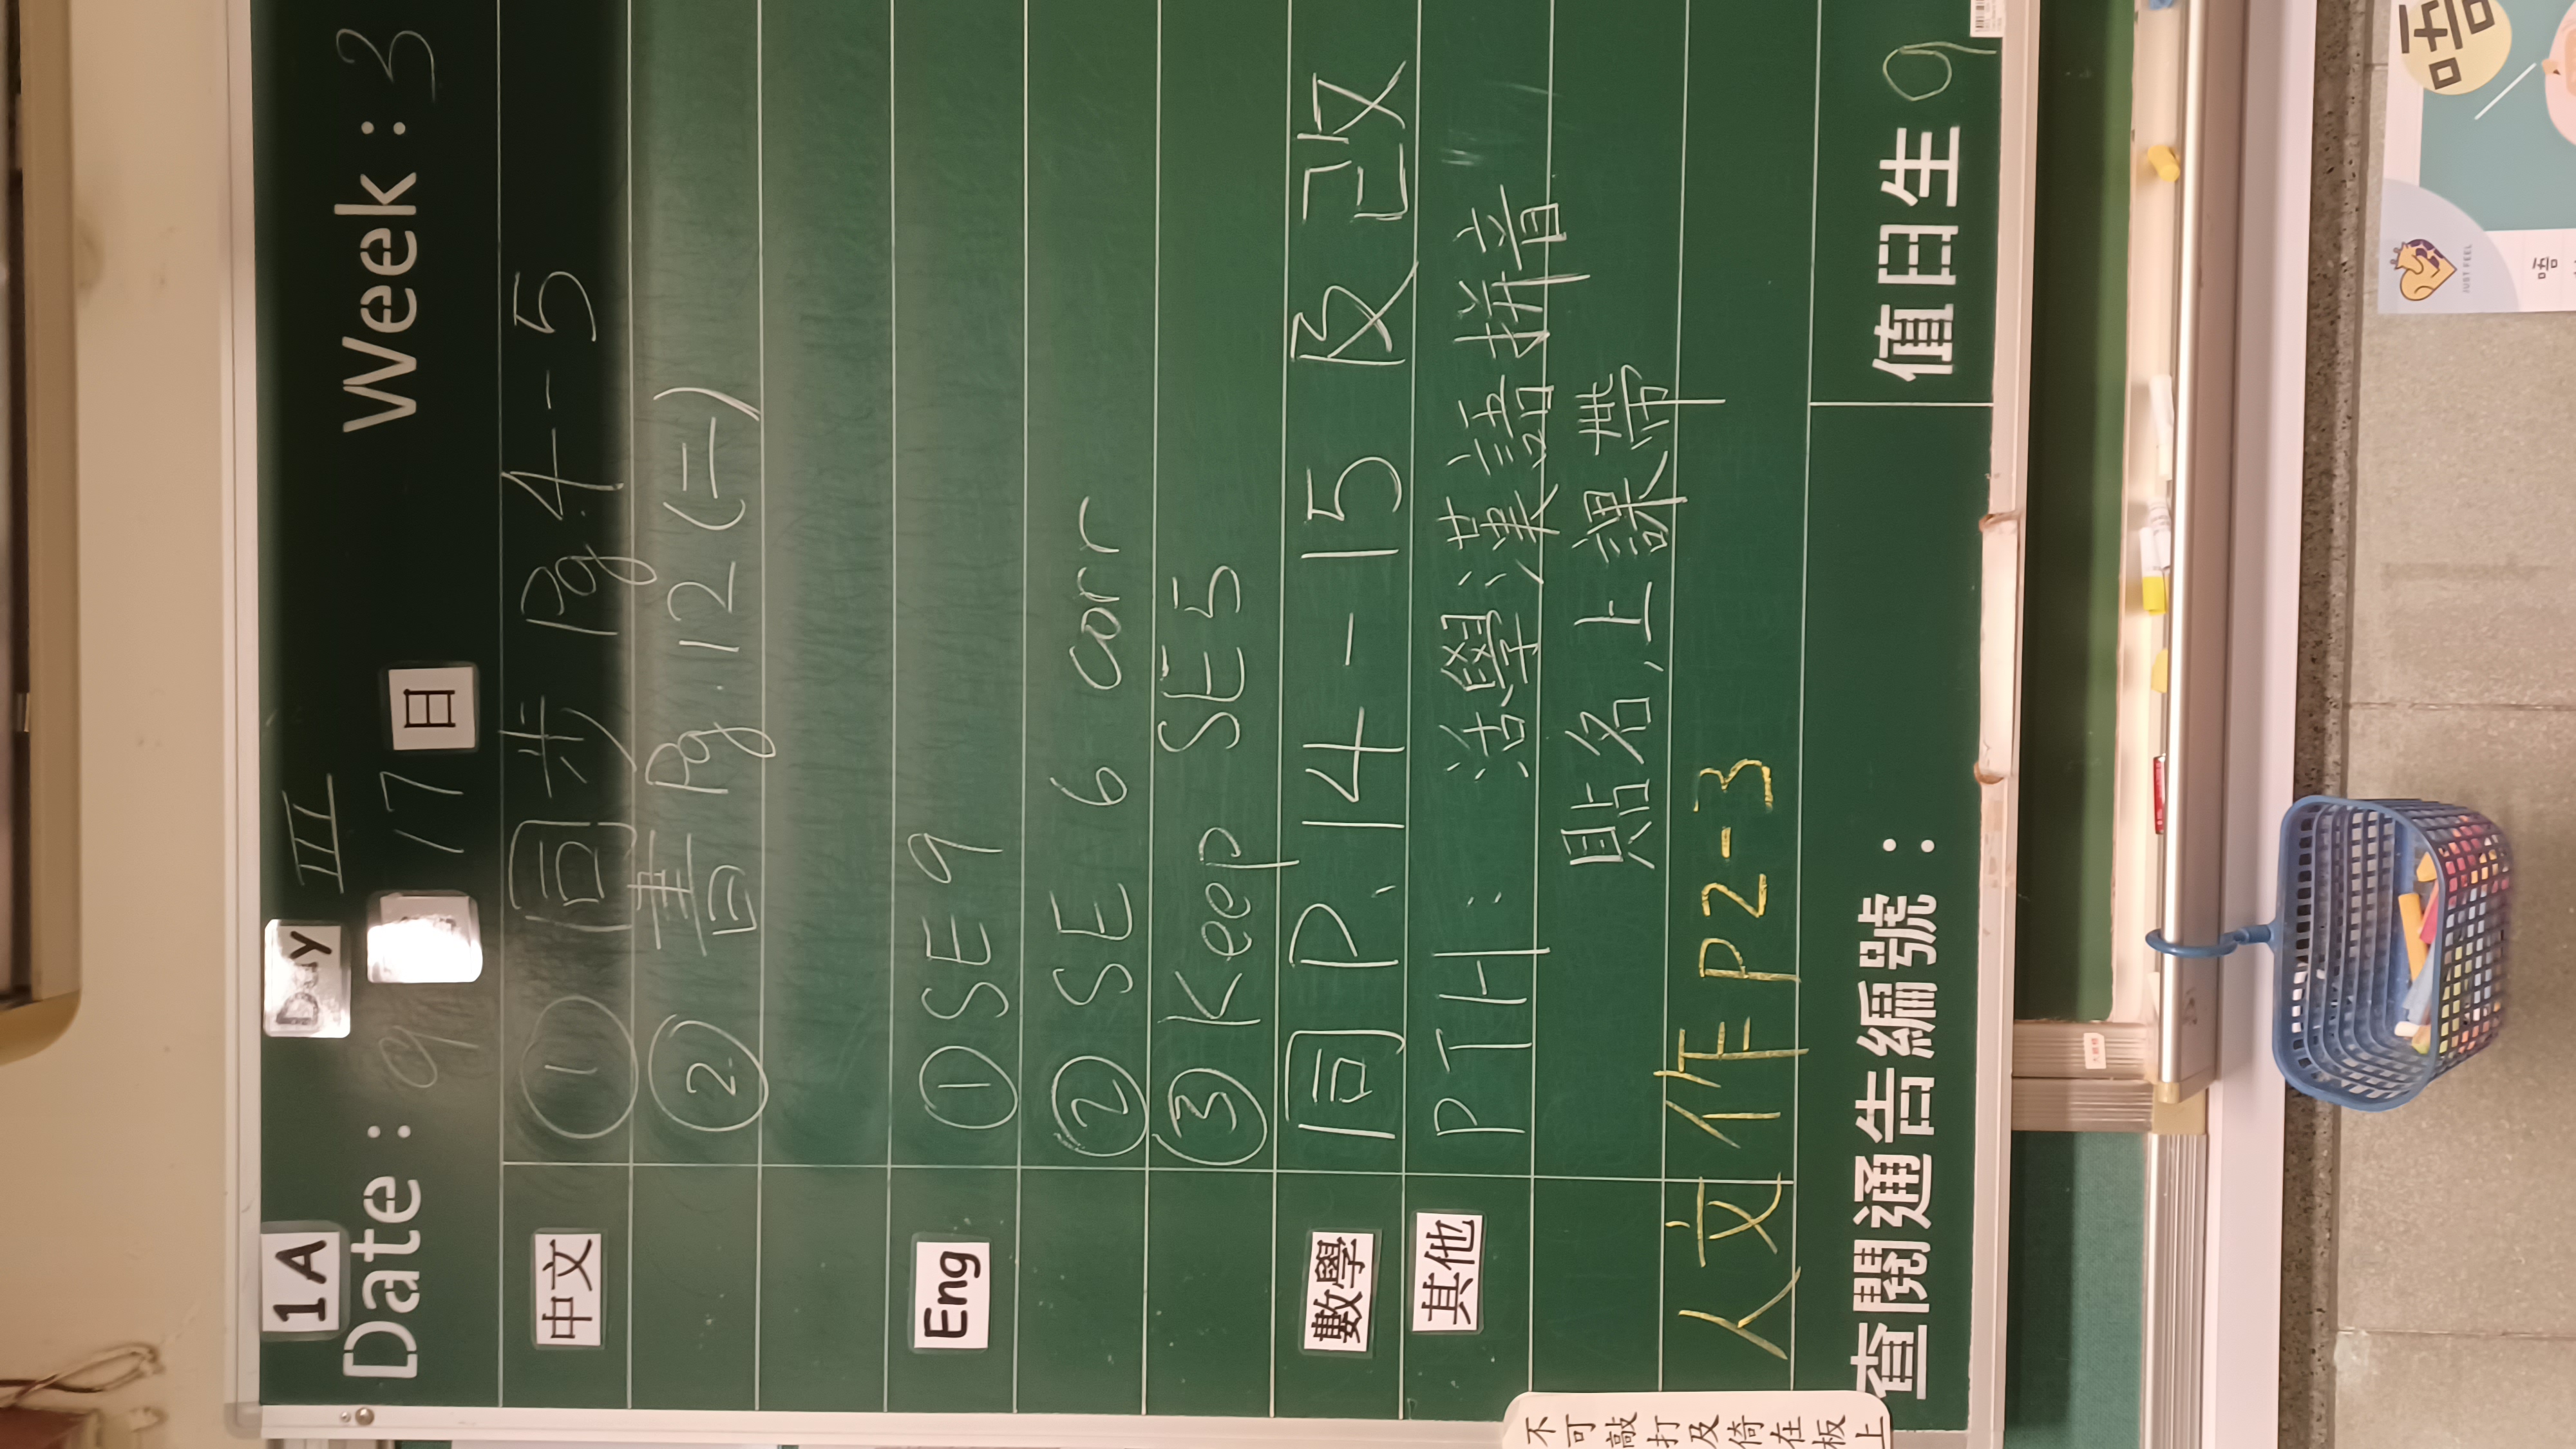 1A Day III
Date: 9 月 17 日 Week: 3
中文 ① 同步 Pg.4-5
② 書 Pg.12 (二)
Eng ① SE 9
② SE 6 corr
③ Keep SE5
數學 同 P.14-15 及改
其他 PTH: 活學活漢語拼音
貼名,上課帶
人文作 P2-3
查閱通告編號: 值日生 9
不可敲打及倚在板上
JUST FEEL